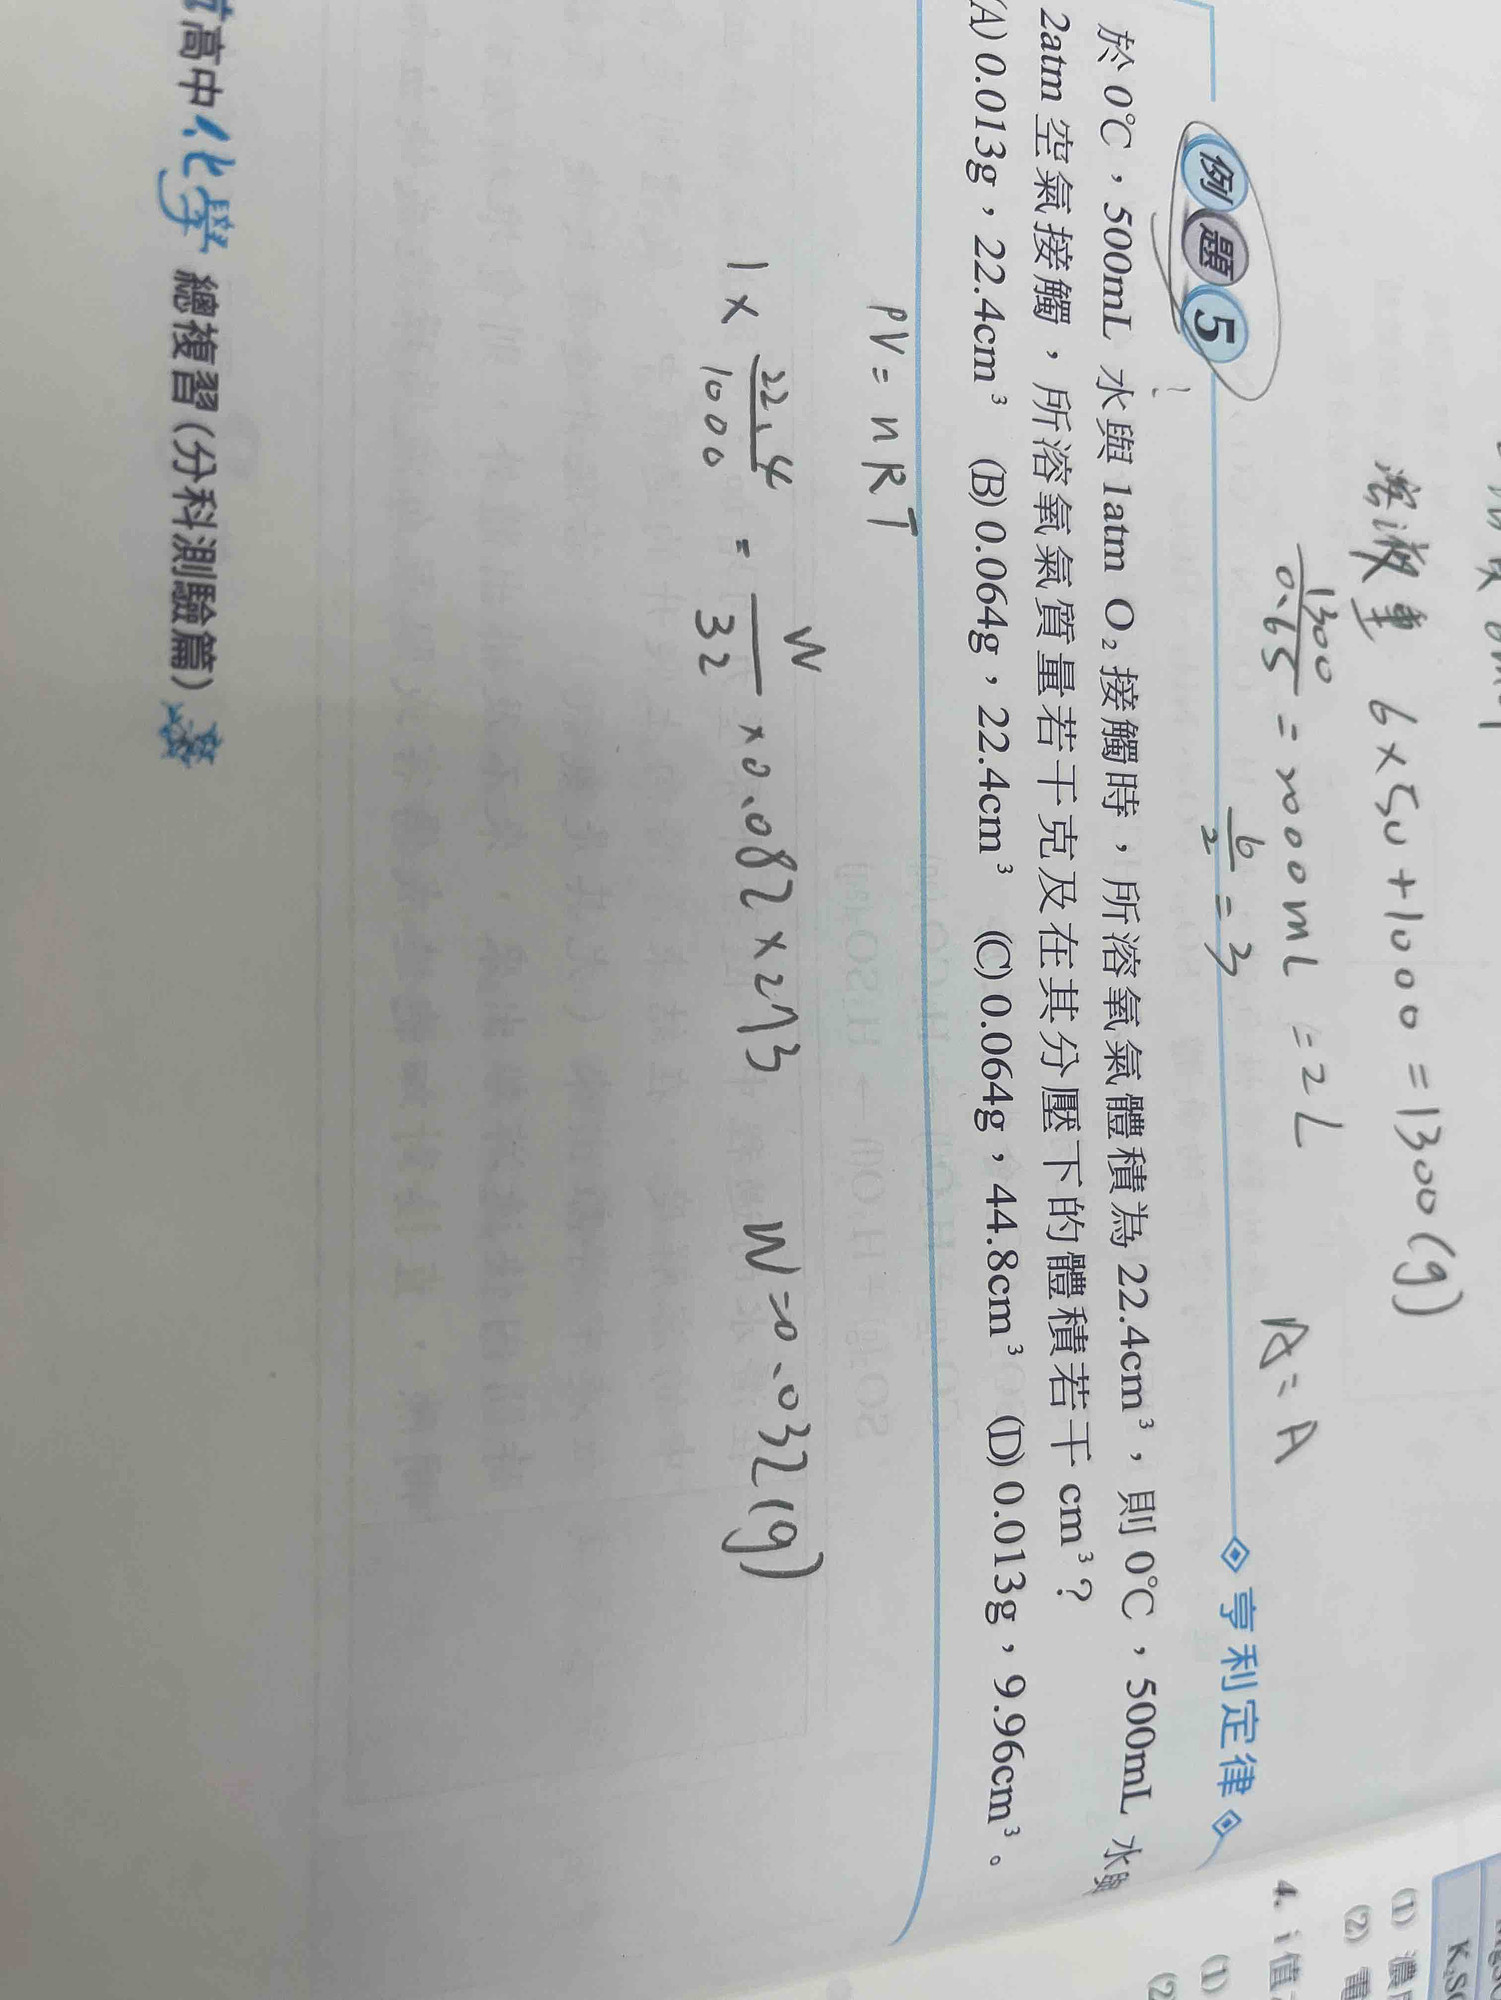 溶液重 6×50+1000=1300(g)
1300/0.65=2000mL =2L
6/2=3
A=A
例題5
◇亨利定律◇
於0℃,500mL 水與 1atm O₂接觸時,所溶氧氣體積為 22.4cm³,則 0℃,500mL 水與
2atm 空氣接觸,所溶氧氣質量若干克及在其分壓下的體積若干 cm³?
(A) 0.013g,22.4cm³ (B) 0.064g,22.4cm³ (C) 0.064g,44.8cm³ (D) 0.013g,9.96cm³。
PV=nRT
1×22.4/1000=W/32×0.082×273 W=0.032(g)
高中化學 總複習(分科測驗篇)
K₂SO
(1) 濃
(2) 電
4. i 值
(1)
(2